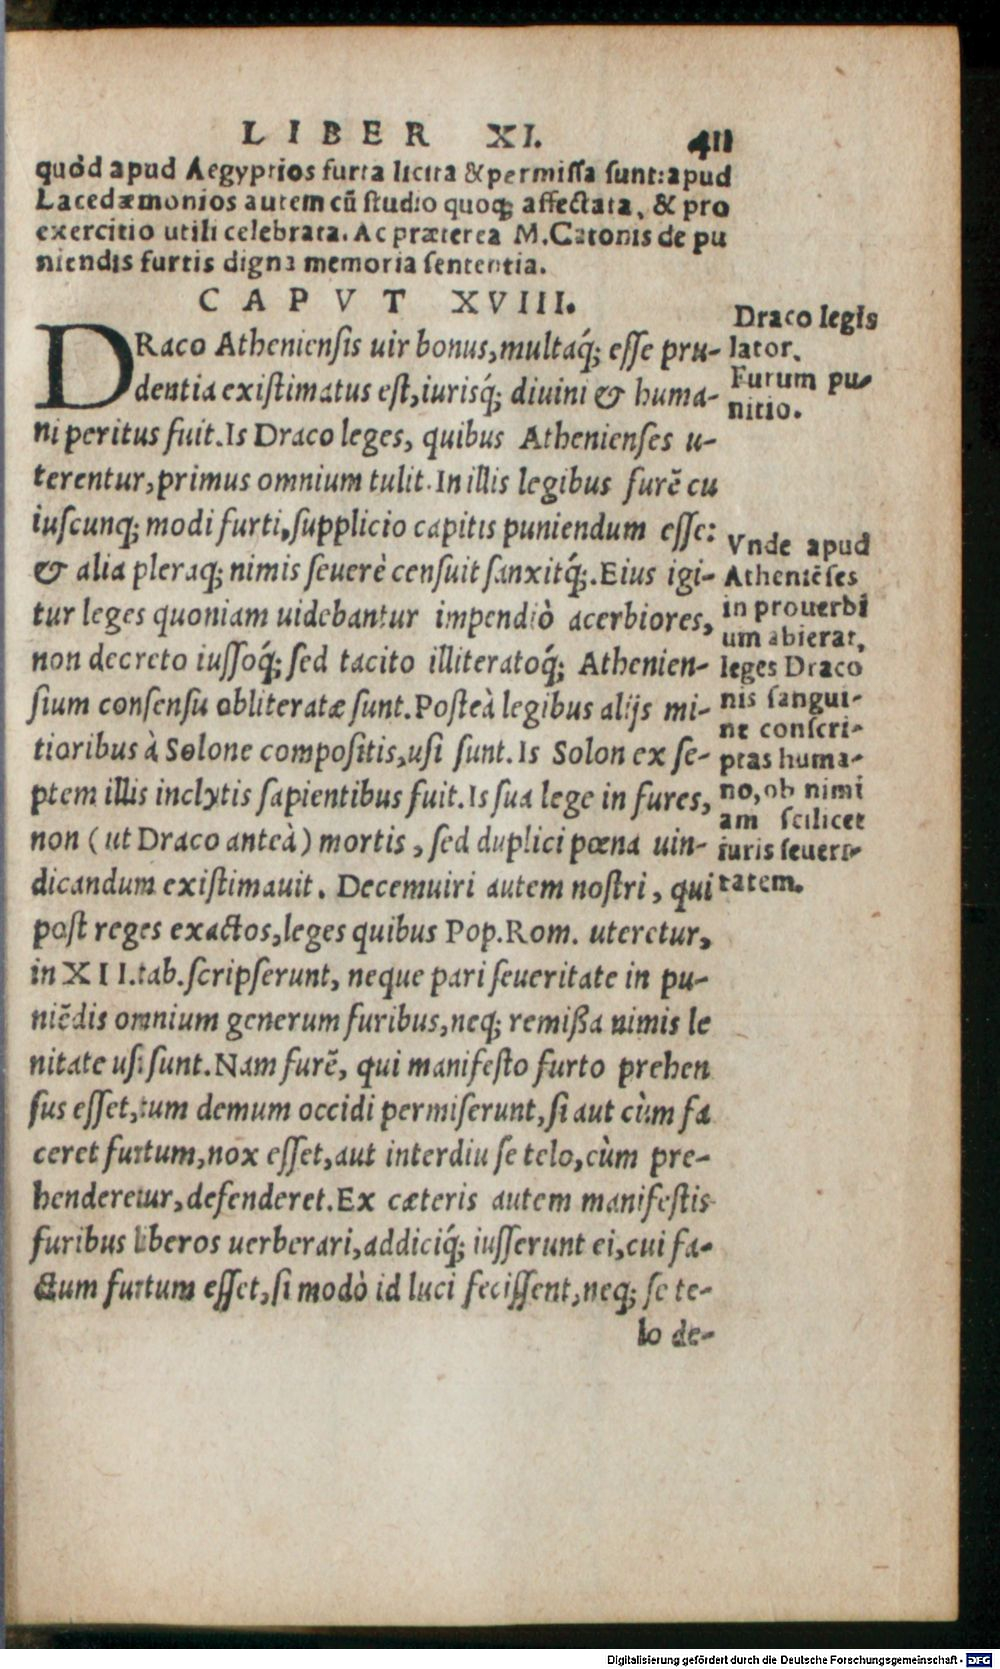 LIBER XI. 411
quòd apud Aegyptios furta licita & permissa sunt: apud
Lacedæmonios autem cũ studio quoq; affectata, & pro
exercitio utili celebrata. Ac præterea M. Catonis de pu
niendis furtis digna memoria sententia.
CAPVT XVIII.
DRaco Atheniensis uir bonus, multaq́; esse pru-
dentia existimatus est, iurisq́; diuini & huma-
ni peritus fuit. Is Draco leges, quibus Athenienses u-
terentur, primus omnium tulit. In illis legibus furẽ cu
iuscunq; modi furti, supplicio capitis puniendum esse:
& alia pleraq; nimis seuerè censuit sanxitq́;. Eius igi-
tur leges quoniam uidebantur impendiò acerbiores,
non decreto iussoq́; sed tacito illiteratoq́; Athenien-
sium consensu obliteratæ sunt. Posteà legibus alijs mi-
tioribus à Solone compositis, usi sunt. Is Solon ex se-
ptem illis inclytis sapientibus fuit. Is sua lege in fures,
non (ut Draco anteà) mortis, sed duplici pœna uin-
dicandum existimauit. Decemuiri autem nostri, qui
post reges exactos, leges quibus Pop. Rom. uteretur,
in XII. tab. scripserunt, neque pari seueritate in pu-
niẽdis omnium generum furibus, neq; remißa nimis le
nitate usi sunt. Nam furẽ, qui manifesto furto prehen
sus esset, tum demum occidi permiserunt, si aut cùm fa
ceret furtum, nox esset, aut interdiu se telo, cùm pre-
henderetur, defenderet. Ex cæteris autem manifestis
furibus liberos uerberari, addiciq́; iusserunt ei, cui fa-
ctum furtum esset, si modò id luci fecissent, neq; se te-
lo de-
Draco legis
lator.
Furum pu-
nitio.
Vnde apud
Atheniẽses
in prouerbi
um abierat,
leges Draco
nis sangui-
ne conscri-
ptas huma-
no, ob nimi
am scilicet
iuris seueri-
tatem.
Digitalisierung gefördert durch die Deutsche Forschungsgemeinschaft - DFG